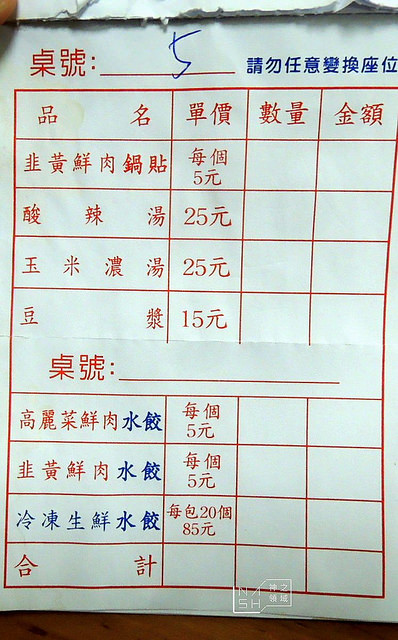 桌號: 5 請勿任意變換座位
品名 單價 數量 金額
韭黃鮮肉鍋貼 每個
5元
酸辣湯 25元
玉米濃湯 25元
豆漿 15元
桌號:
高麗菜鮮肉水餃 每個
5元
韭黃鮮肉水餃 每個
5元
冷凍生鮮水餃 每包20個
85元
合計
NASH 神之
領域